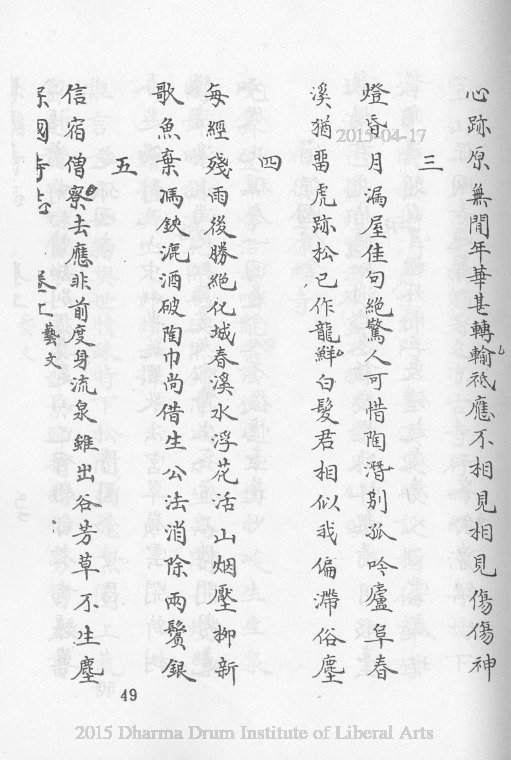 心跡原無間年華甚轉輸祗應不相見相見傷傷神
三
燈昏月漏屋佳句絕驚人可惜陶潛別孤吟廬阜春
溪猶畱虎跡松已作龍鮮白髮君相似我偏滯俗塵
四
每經殘雨後勝絕化城春溪水浮花活山烟壓柳新
歌魚棄馮鋏漉酒破陶巾尚借生公法消除兩鬢銀
五
信宿僧寮去應非前度身流泉雖出谷芳草不生塵
國寺志 卷上 藝文
49
2015-04-17
2015 Dharma Drum Institute of Liberal Arts